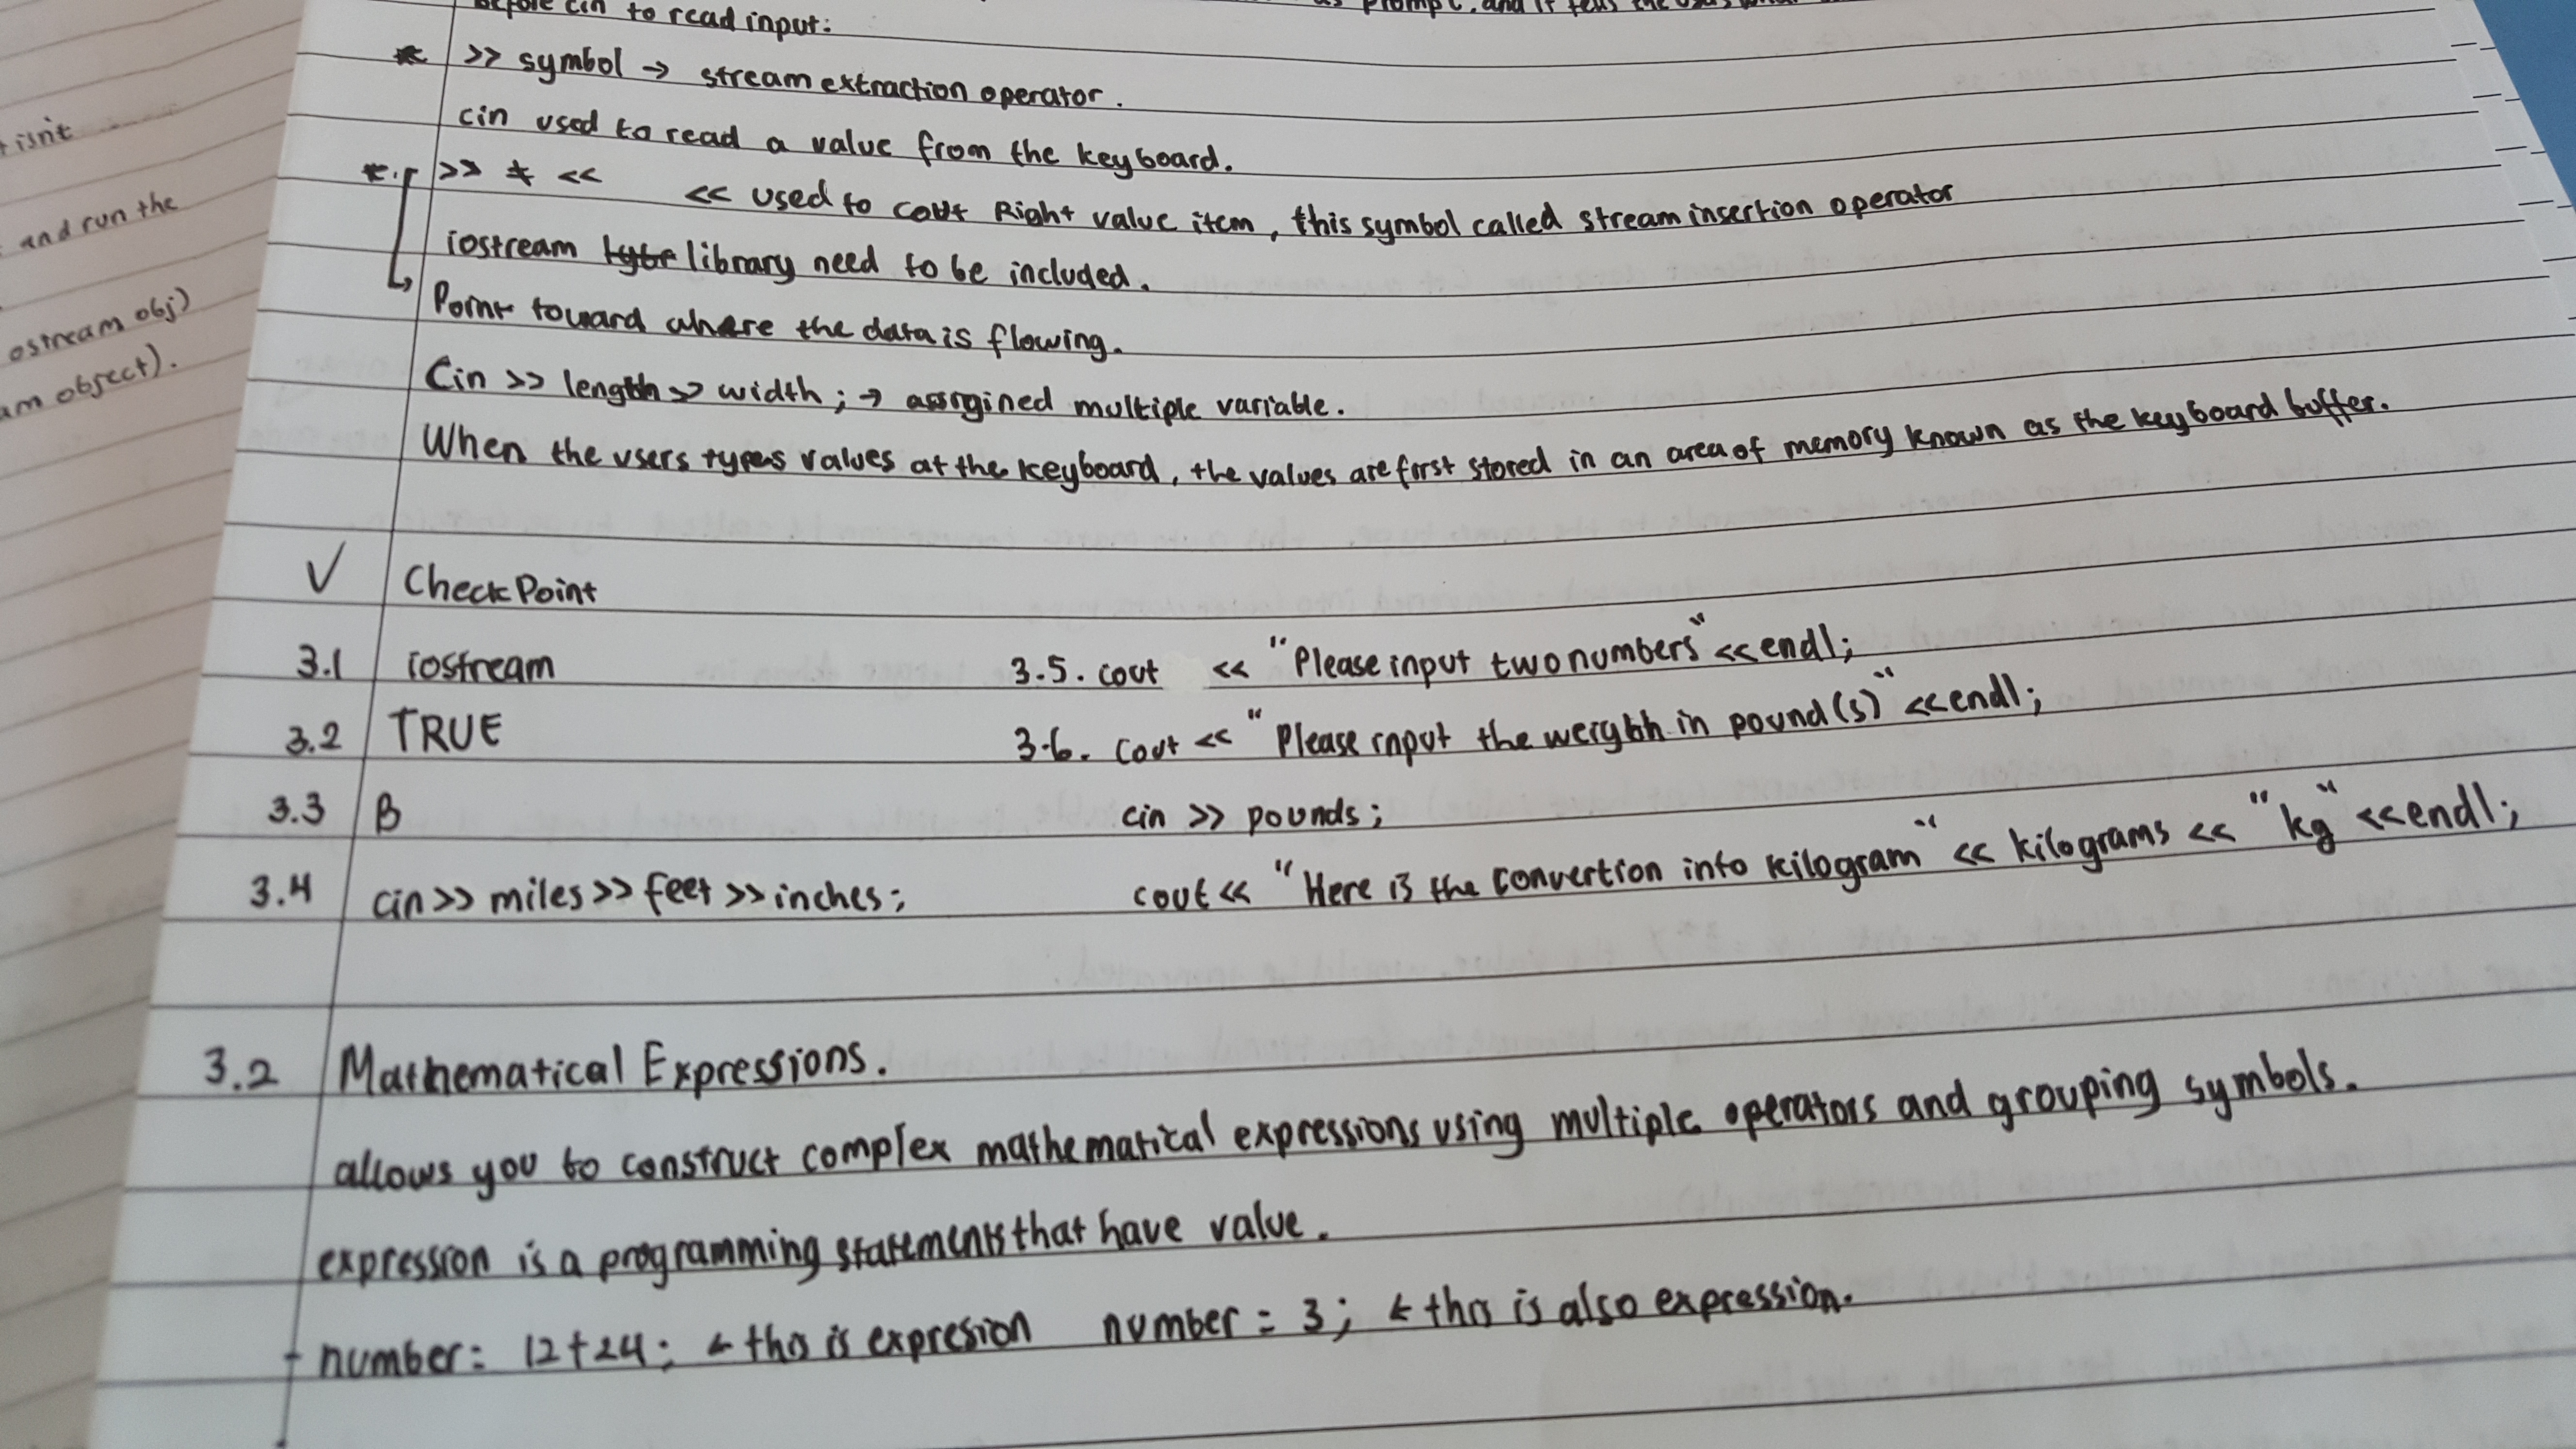 before cin to read input:
* >> symbol → stream extraction operator.
cin used to read a value from the keyboard.
* >> ≠ << << used to cout Right value item, this symbol called stream insertion operator
iostream library need to be included.
↳ Point toward where the data is flowing.
Cin >> length >> width; → assigined multiple variable.
When the users types values at the keyboard, the values are first stored in an area of memory known as the keyboard buffer.
✓ CheckPoint
3.1 iostream
3.2 TRUE
3.3 B
3.4 cin >> miles >> feet >> inches;
3.5. cout << "Please input two numbers" << endl;
3.6. cout << "Please input the weighh in pound(s)" << endl;
cin >> pounds;
cout << "Here is the convertion into kilogram" << kilograms << "kg" << endl;
3.2 Mathematical Expressions.
allows you to construct complex mathematical expressions using multiple operators and grouping symbols.
expression is a programming statements that have value.
number = 12+24; ← this is expresion number = 3; ← this is also expression.
isn't
and run the
ostream obj)
am object).